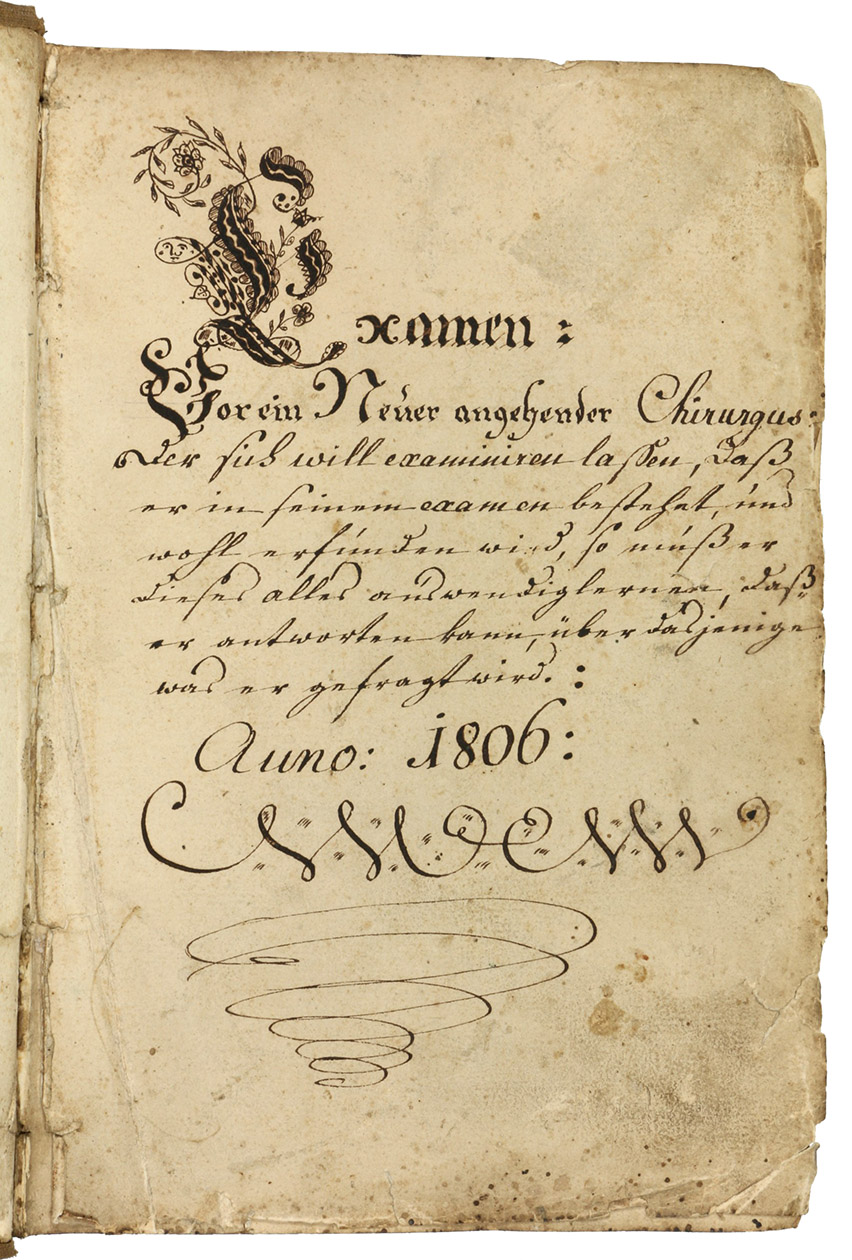 Examen:
Vor ein Neuer angehender Chirurgus:
Der sich will examiniren lassen, daß
er in seinem examen bestehet, und
wohl erfunden wird, so muß er
dieses alles auswendiglernen, daß
er antworten kann, über dasjenige
was er gefragt wird.:
Anno: 1806: